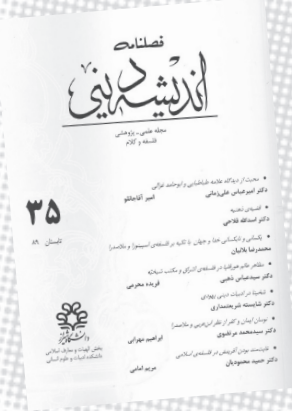 فصلنامه
اندیشه دینی
مجله علمی - پژوهشی
فلسفه و کلام
۳۵
تابستان ۸۹
• محبت از دیدگاه علامه طباطبایی و ابوحامد غزالی
دکتر امیرعباس علی‌زمانی امیر آقاجانلو
• قضیه‌ی ثنائیه
دکتر اسدالله فلاحی
• یکسانی و نایکسانی خدا و جهان با تکیه بر فلسفه‌ی اسپینوزا و ملاصدرا
محمدرضا بلانیان
• مظاهر عالم هورقلیا در فلسفه‌ی اشراق و مکتب شیخیه
دکتر سیدعباس ذهبی فریده محرمی
• شخینا در ادبیات دینی یهودی
دکتر شایسته شریعتمداری
• نوسان ایمان و کفر از نظر ابن‌عربی و ملاصدرا
دکتر سیدمحمد مرتضوی ابراهیم مهرابی
• فایده‌مند بودن آفرینش در فلسفه‌ی اسلامی
دکتر حمید محمودیان مریم امامی
دانشگاه شیراز
بخش الهیات و معارف اسلامی
دانشکده ادبیات و علوم انسانی